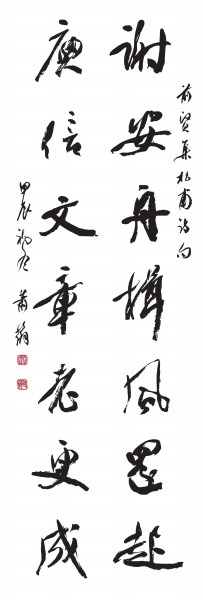 谢安舟楫风还起
庾信文章老更成
前贤集杜甫诗句
甲辰初冬